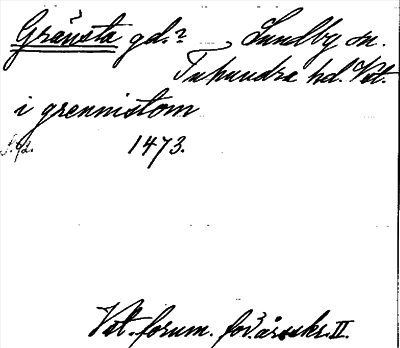 Gränsta gd.? Lundby sn.
Tuhundra hd. Vstl.
i grennistom
S.gd. 1473.
Vstl. fornm. för. årsskr. II.